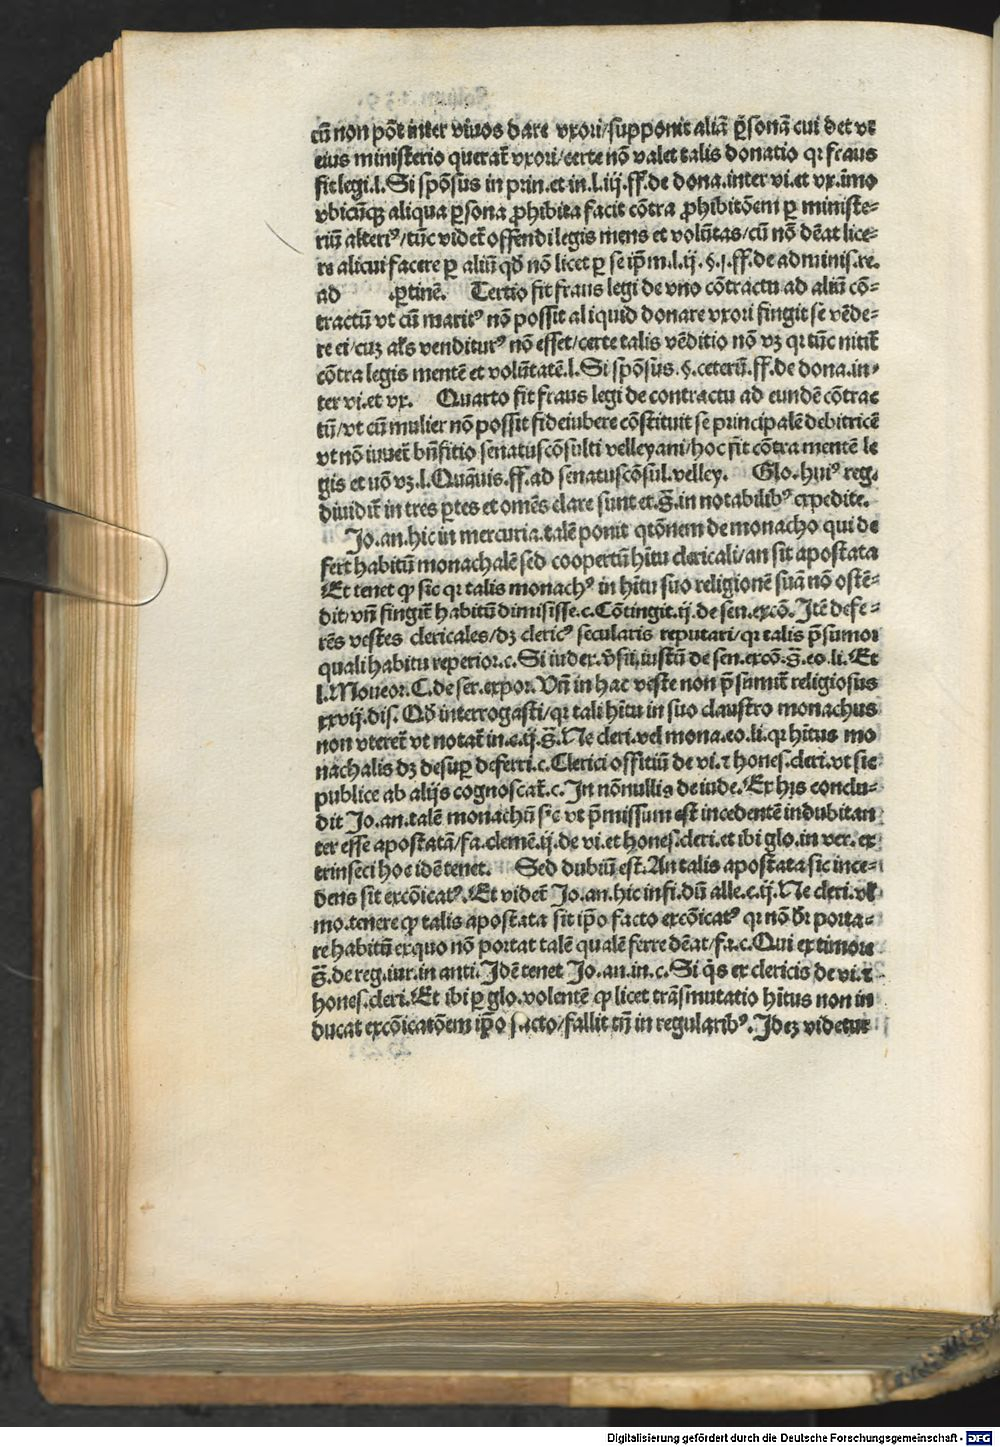 cū non pōt inter viuos dare vxori/supponit aliā p̄sonā cui det vt
eius ministerio querat̄ vxori/certe nō valet talis donatio qꝛ fraus
fit legi.l. Si spōsus in prin. et in.l.iij.ff.de dona.inter vi.et vx.īmo
vbicūqꝫ aliqua ꝑsona ꝓhibita facit cōtra ꝓhibitōem ꝑ ministe-
riū alteriꝰ/tūc videt̄ offendi legis mens et volūtas/cū nō dēat lice-
re alicui facere ꝑ aliū qd̄ nō licet ꝑ se ip̄m.l.ij.§.j.ff.de adminis.re.
ad .ꝑtinē. Tertio fit fraus legi de vno cōtractu ad aliū cō-
tractū vt cū maritꝰ nō possit aliquid donare vxori fingit se vēde-
re ei/cuꝫ al̄s venditurꝰ nō esset/certe talis vēditio nō vꝫ qꝛ tūc nitit̄
cōtra legis mentē et volūtatē.l. Si spōsus.§.ceterū.ff.de dona.in-
ter vi.et vx. Quarto fit fraus legi de contractu ad eundē cōtrac
tū/vt cū mulier nō possit fideiubere cōstituit se principalē debitricē
vt nō iuuet̄ bn̄fitio senatuscōsulti velleyani/hoc fit cōtra mentē le
gis et nō vꝫ.l. Quāuis.ff.ad senatuscōsul.velley. Glo.huiꝰ reg.
diuidit̄ in tres ꝑtes et omēs clare sunt et.s̄.in notabilibꝰ expedite.
Jo.an.hic in mercuria.talē ponit qtōnem de monacho qui de
fert habitū monachalē sed coopertū hītu clericali/an sit apostata
Et tenet ꝙ sic qꝛ talis monachꝰ in hītu suo religionē suā nō ostē-
dit/vn̄ fingit̄ habitū dimisisse.c. Cōtingit.ij.de sen.excō. Jtē defe-
rēs vestes clericales/dꝫ clericꝰ secularis reputari/qꝛ talis p̄sumor
quali habitu reperior.c. Si iudex. de sen.excō.s̄.eo.li. Et
l. Moueor. C. de ser.expor. Vn̄ in hac veste non p̄sumit̄ religiosus
xxvij.dis. Qd̄ interrogasti/qꝛ tali hītu in suo claustro monachus
non vteret̄ vt notat̄ in.c.ij.s̄. Ne cleri.vel mona.eo.li.qꝛ hītus mo
nachalis dꝫ desuꝑ deferri.c. Clerici offitiū de vi.ꞇ hones.cleri.vt sic
publice ab alijs cognoscat̄.c. Jn nōnullis de iude. Ex his conclu-
dit Jo.an.talē monachū sic vt p̄missum est incedentē indubitan
ter esse apostatā/fa.clemē.ij.de vi.et hones.cleri.et ibi glo.in ver.ex
trinseci hoc idē tenet. Sed dubiū est. An talis apostata sic ince-
dens sit excōicatꝰ. Et videt̄ Jo.an.hic in fi.dū alle.c.ij. Ne cleri.vl̄
mo.tenere ꝙ talis apostata sit ip̄o facto excōicatꝰ qꝛ nō dꝫ porta-
re habitū exquo nō portat talē qualē ferre dēat/fa.c. Qui ex timore
s̄.de reg.iur.in anti. Jdē tenet Jo.an.in.c. Si q̄s ex clericis de vi.ꞇ
hones.cleri. Et ibi ꝑ glo.volentē ꝙ licet trāsmutatio hītus non in
ducat excōicatōem ip̄o facto/fallit tn̄ in regularibꝰ. Jdeꝫ videtur
Digitalisierung gefördert durch die Deutsche Forschungsgemeinschaft - DFG